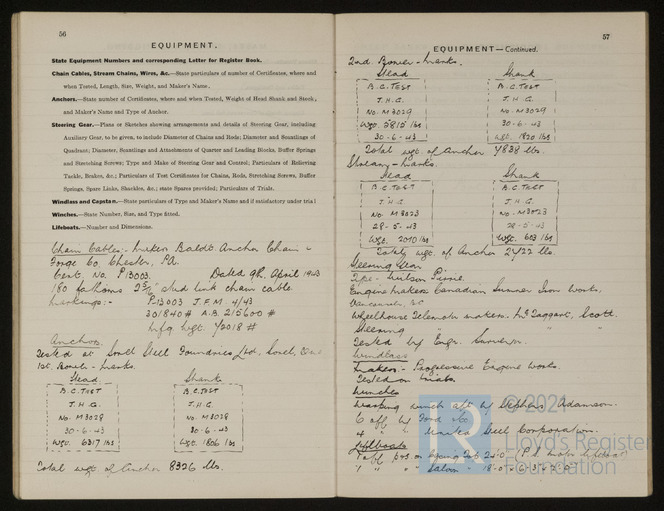 56
EQUIPMENT.
State Equipment Numbers and corresponding Letter for Register Book.
Chain Cables, Stream Chains, Wires, &c.—State particulars of number of Certificates, where and
when Tested, Length, Size, Weight, and Maker's Name.
Anchors.—State number of Certificates, where and when Tested, Weight of Head Shank and Stock,
and Maker's Name and Type of Anchor.
Steering Gear.—Plans or Sketches showing arrangements and details of Steering Gear, including
Auxiliary Gear, to be given, to include Diameter of Chains and Rods; Diameter and Scantlings of
Quadrant; Diameter, Scantlings and Attachments of Quarter and Leading Blocks, Buffer Springs
and Stretching Screws; Type and Make of Steering Gear and Control; Particulars of Relieving
Tackle, Brakes, &c.; Particulars of Test Certificates for Chains, Rods, Stretching Screws, Buffer
Springs, Spare Links, Shackles, &c.; state Spares provided; Particulars of Trials.
Windlass and Capstan.—State particulars of Type and Maker's Name and if satisfactory under trial
Winches.—State Number, Size, and Type fitted.
Lifeboats.—Number and Dimensions.
Chain Cables:- Baldt Anchor Chain &
Forge Co, Chester, PA.
Cert. No. P13003. Dated 9th April 1943
180 fathoms stud link chain cable
Markings:- P13003 J.F.M. 4/43
301840 # A.B. 215600 #
Mfg. Wgt. 42018 #
Anchors
Tested at Sorel Steel Foundries Ltd. Sorel,
1st Bower - Marks.
Head Shank
B.C.TEST B.C.TEST
J.H.G. J.H.G.
No. M3029 No. M3029
30-6-43 30-6-43
Wgt. 6317 lbs Wgt. 1806 lbs
Total wgt of Anchor 8326 lbs.
57
EQUIPMENT—Continued.
2nd Bower - Marks.
Head Shank
B.C.TEST B.C.TEST
J.H.G. J.H.G.
No. M3029 No. M3029
Wgt. 5815 lbs 30-6-43
30-6-43 Wgt. 1820 lbs
Total wgt of Anchor 7838 lbs.
Stream - Marks.
Head Shank
B.C.TEST B.C.TEST
J.H.G J.H.G
No. M3023 No. M3023
28-5-43 28-5-43
Wgt. 2070 lbs Wgt. 603 lbs
Total wgt. of Anchor 2722 lbs.
Steering Gear
Type - Wilson Pirrie
Engine Makers Canadian Sumner Iron Works,
Vancouver, BC
Wheelhouse Telemotor makers. McTaggart, Scott.
Steering " "
Tested by Engr. Surveyor.
Windlass
Makers:- Progressive Engine Works.
Tested on trials.
Winches
Warping winch aft by Stephens Adamson.
6 off by
4 " " Steel Corporation.
Lifeboats
© 2021
Lloyd's Register
Foundation